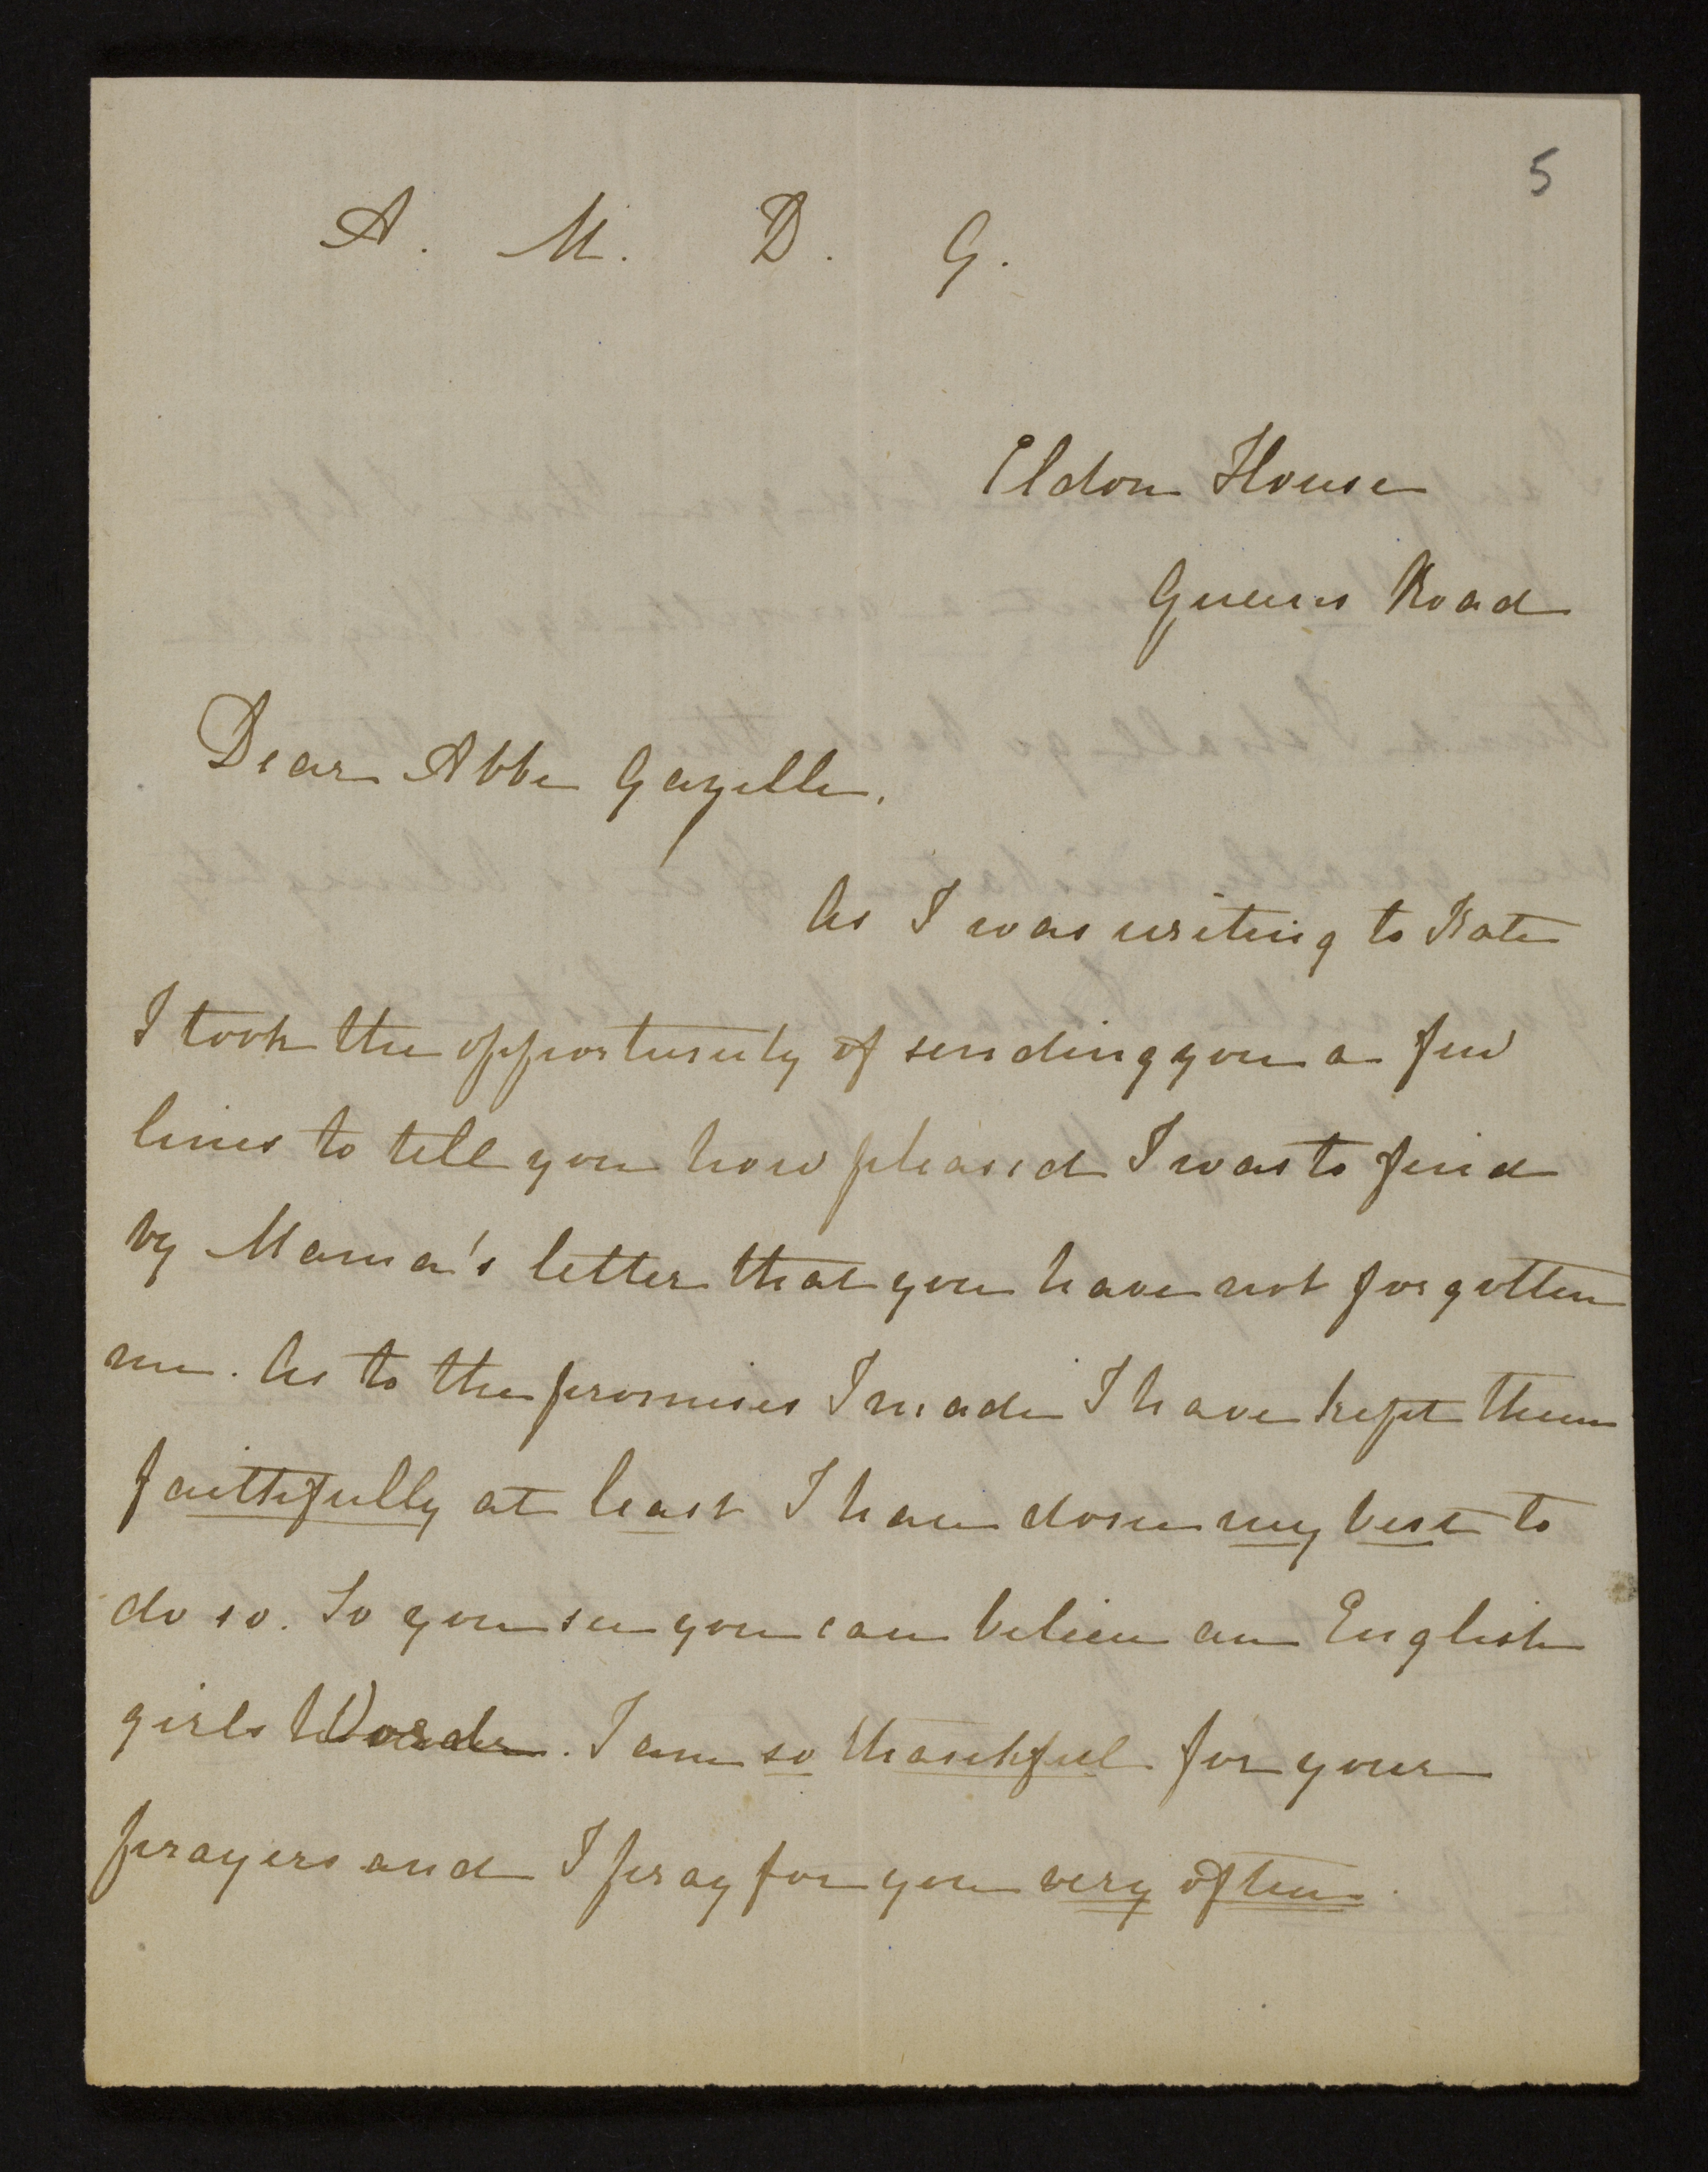 5
A. M. D. G.
Eldon House
Queens Road
Dear Abbe Gazelle,
As I was writing to Kate
I took the opportunity of sending you a few
lines to tell you how pleased I was to find
by Mama's letter that you have not forgotten
me. As to the promises I made I have kept them
faithfully at least I have done my best to
do so. So you see you can believe an English
girls Word. I am so thankful for your
prayers and I pray for you very often.